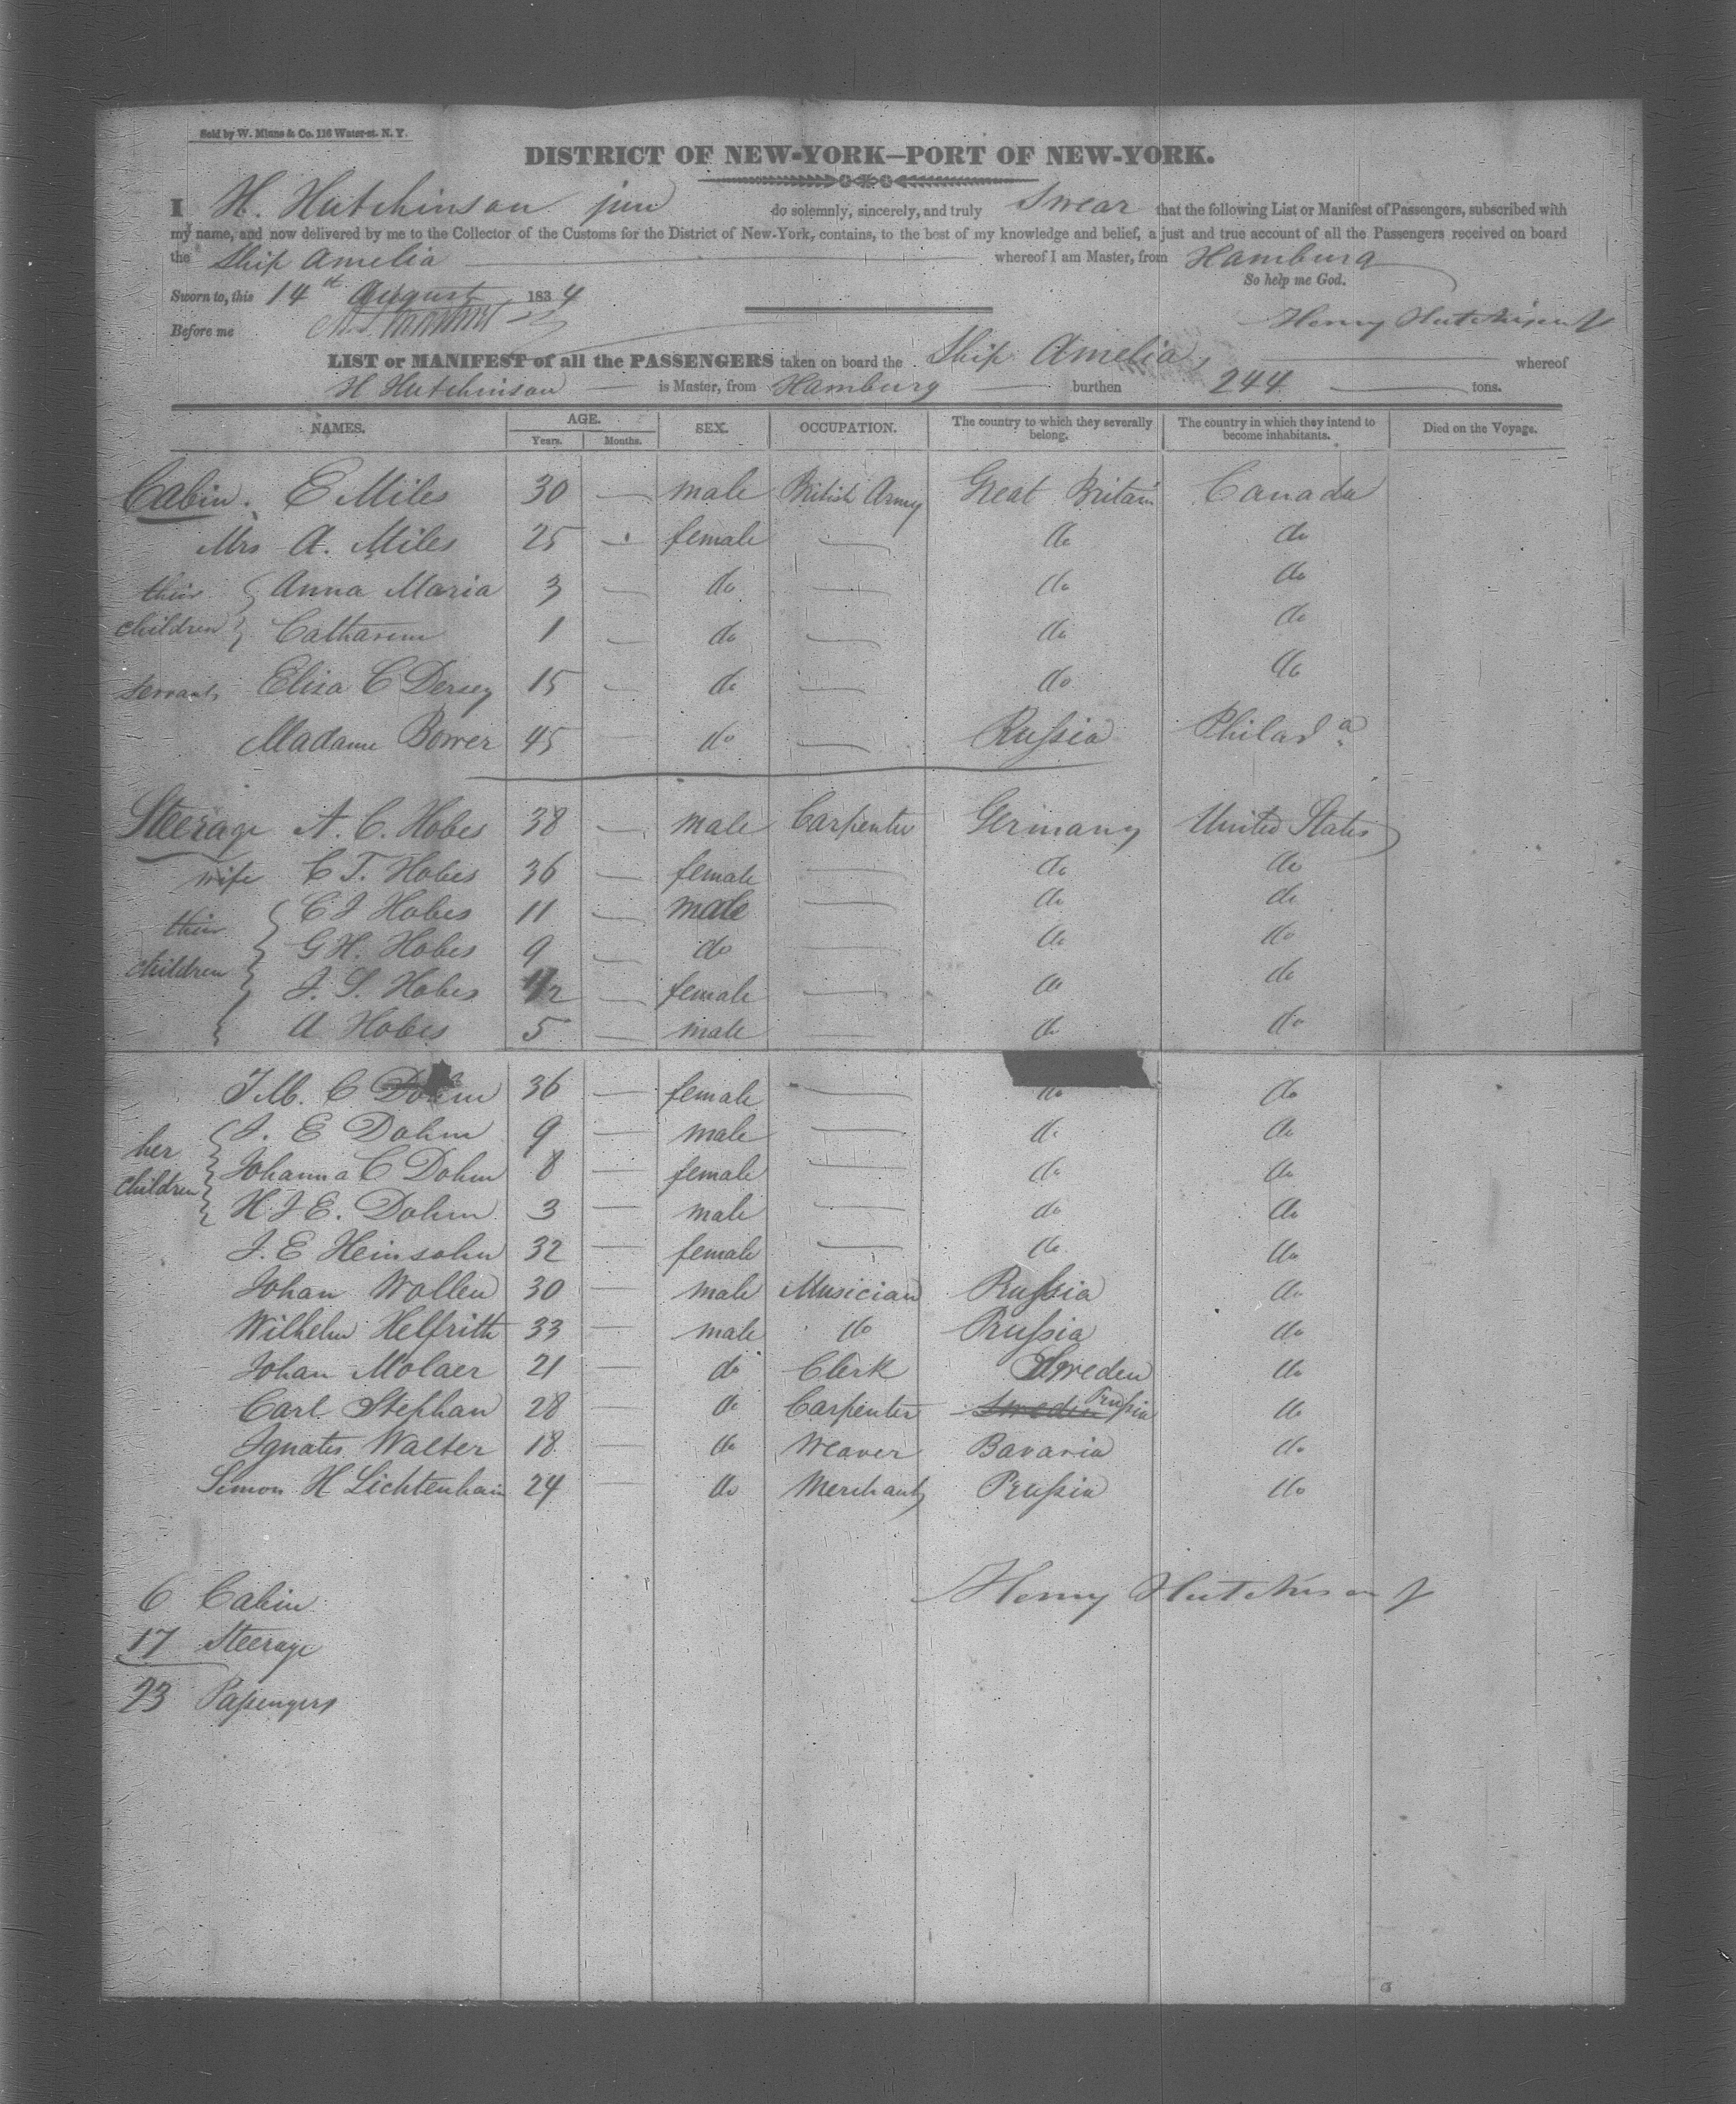 Sold by W. Minns & Co. 116 Water-st. N. Y.
DISTRICT OF NEW-YORK—PORT OF NEW-YORK.
I H. Hutchinson jun do solemnly, sincerely, and truly Swear that the following List or Manifest of Passengers, subscribed with
my name, and now delivered by me to the Collector of the Customs for the District of New-York, contains, to the best of my knowledge and belief, a just and true account of all the Passengers received on board
the Ship Amelia whereof I am Master, from Hamburg
So help me God.
Sworn to, this 14 August 1834
Before me Henry Hutchinson Jr
LIST or MANIFEST of all the PASSENGERS taken on board the Ship Amelia whereof
H Hutchinson is Master, from Hamburg burthen 244 tons.
NAMES. AGE. Years. Months. SEX. OCCUPATION. The country to which they severally belong. The country in which they intend to become inhabitants. Died on the Voyage.
Cabin. E Miles 30 — male British Army Great Britain Canada
Mrs A. Miles 25 — female — do do
their children Anna Maria 3 — do — do do
Catharine 1 — do — do do
servant Elisa C Dersey 15 — do — do do
Madame Bower 45 do — Russia Philada
Steerage A. C. Hobes 38 — male Carpenter Germany United States
wife C T. Hobes 36 — female — do do
their children C J Hobes 11 — male — do do
G H. Hobes 9 — do — do do
J. S. Hobes 1/2 — female — do do
A Hobes 5 — male — do do
J M. C Dohm 36 — female — do do
her children J. E Dohm 9 — male — do do
Johanna C Dohm 8 — female — do do
H J E. Dohm 3 — male — do do
J. E Heinsohn 32 — female — do do
Johan Wollen 30 — male Musician Russia do
Wilhelm Helfrith 33 — male do Prussia do
Johan Molaer 21 — do Clerk Sweden do
Carl Stephan 28 — do Carpenter Sweden Prussia do
Ignatis Walter 18 — do Weaver Bavaria do
Simon H Lichtenhain 24 — do Merchant Prussia do
6 Cabin Henry Hutchinson Jr
17 Steerage
23 Passengers